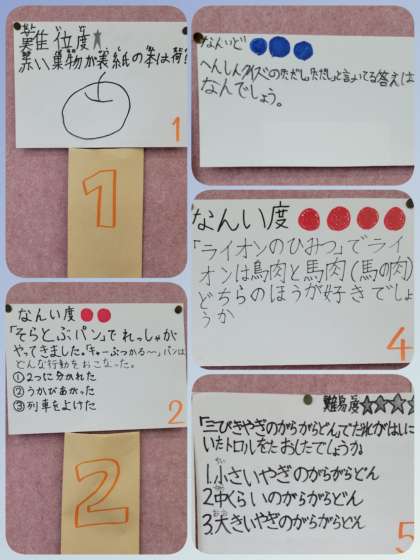 難位度★
赤い果物が表紙の本は何!
1
1
なんい度●●
「そらとぶパン」でれっしゃが
やってきました。「キャーぶつかる〜」パンは
どんな行動をおこなった。
①2つに分かれた
②うかびあがった
③列車をよけた
2
2
なんいど●●●
へんしんクイズのただし、ただしと言いてる答えは
なんでしょう。
なんい度●●●●
「ライオンのひみつ」でライ
オンは鳥肉と馬肉(馬の肉)
どちらのほうが好きでしょ
うか
4
難易度★★★★
「三びきやぎのがらがらどん」でだれがはしに
いたトロルをたおしたでしょうか。
1.小さいやぎのがらがらどん
2.中くらいのがらがらどん
3.大きいやぎのがらがらどん
5